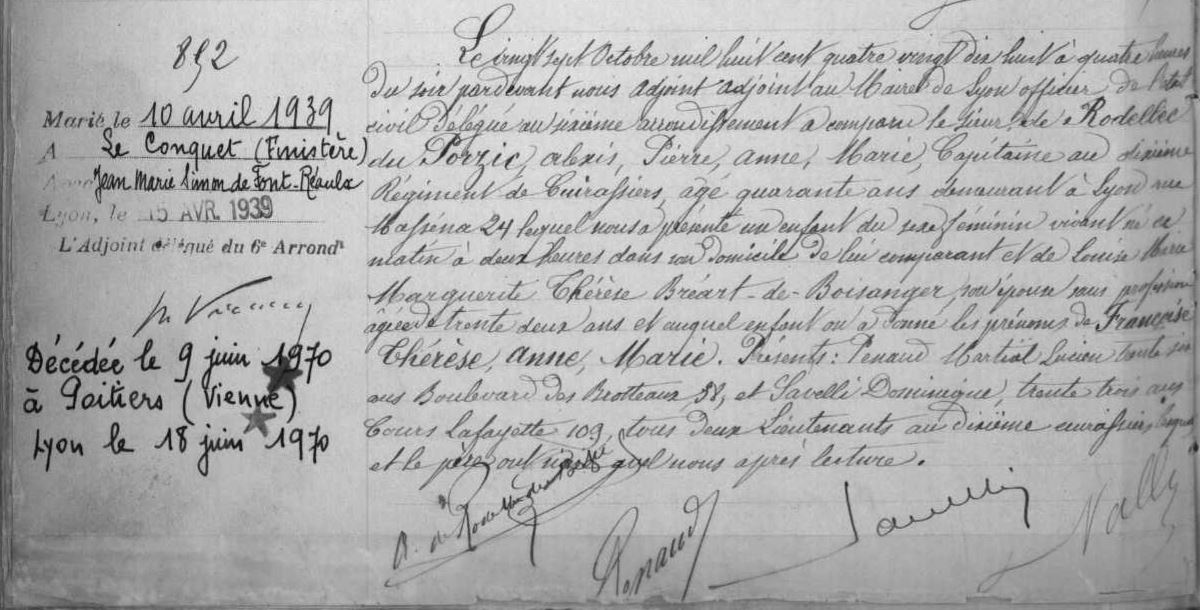 852
Marié le 10 avril 1939
A Le Conquet (Finistère)
Avec Jean Marie Simon de Font-Réaulx
Lyon, le 15 AVR. 1939
L'Adjoint délégué du 6e Arrondt
Décédée le 9 juin 1970
à Poitiers (Vienne)
Lyon le 18 juin 1970
Le vingt sept Octobre mil huit cent quatre vingt dix huit à quatre heures
du soir pardevant nous adjoint adjoint au Maire de Lyon officier de l'état
civil délégué au sixième arrondissement a comparu le sieur de Rodellec
du Porzic, alexis, Pierre, anne, Marie, Capitaine au dixième
Régiment de Cuirassiers, âgé quarante ans demeurant à Lyon rue
Masséna 24 lequel nous a présenté un enfant du sexe féminin vivant né ce
matin à deux heures dans son domicile de lui comparant et de Louise Marie
Marguerite Thérèse Bréart-de-Boisanger, son épouse sans profession
âgée de trente deux ans et auquel enfant on a donné les prénoms de Françoise
Thérèse, anne, Marie. Présents: Penaud Martial Lucien trente six
ans Boulevard des Brotteaux 58, et Savelli Dominique, trente trois ans
Cours Lafayette 109, tous deux Lieutenants au dixième cuirassiers, lesquels
et le père ont signé avec nous après lecture.
A. de Rodellec du Porzic
Penaud
Savelli